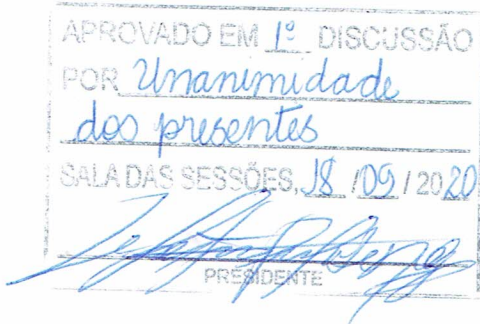 APROVADO EM 1º DISCUSSÃO
POR Unanimidade
dos presentes
SALA DAS SESSÕES, 18 / 09 / 2020
PRESIDENTE